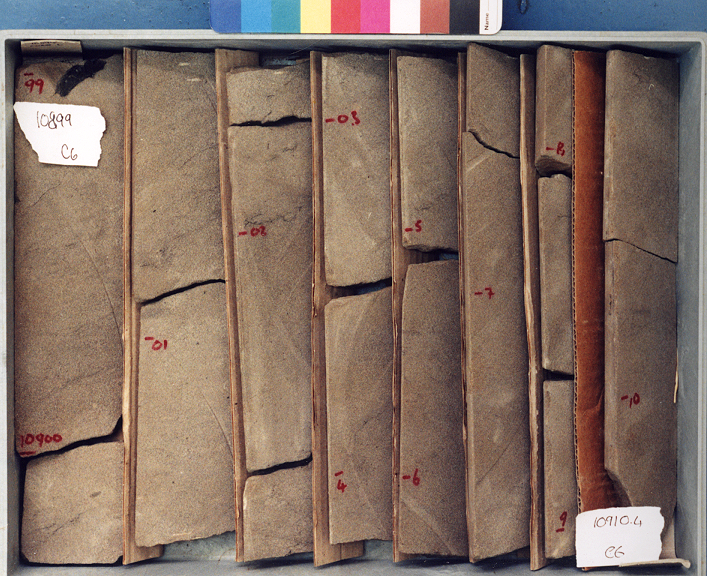 Name:
-99
10899
C6
10900
-01
-02
-03
-4
-5
-6
-7
-8
9
-10
10910.4
C6